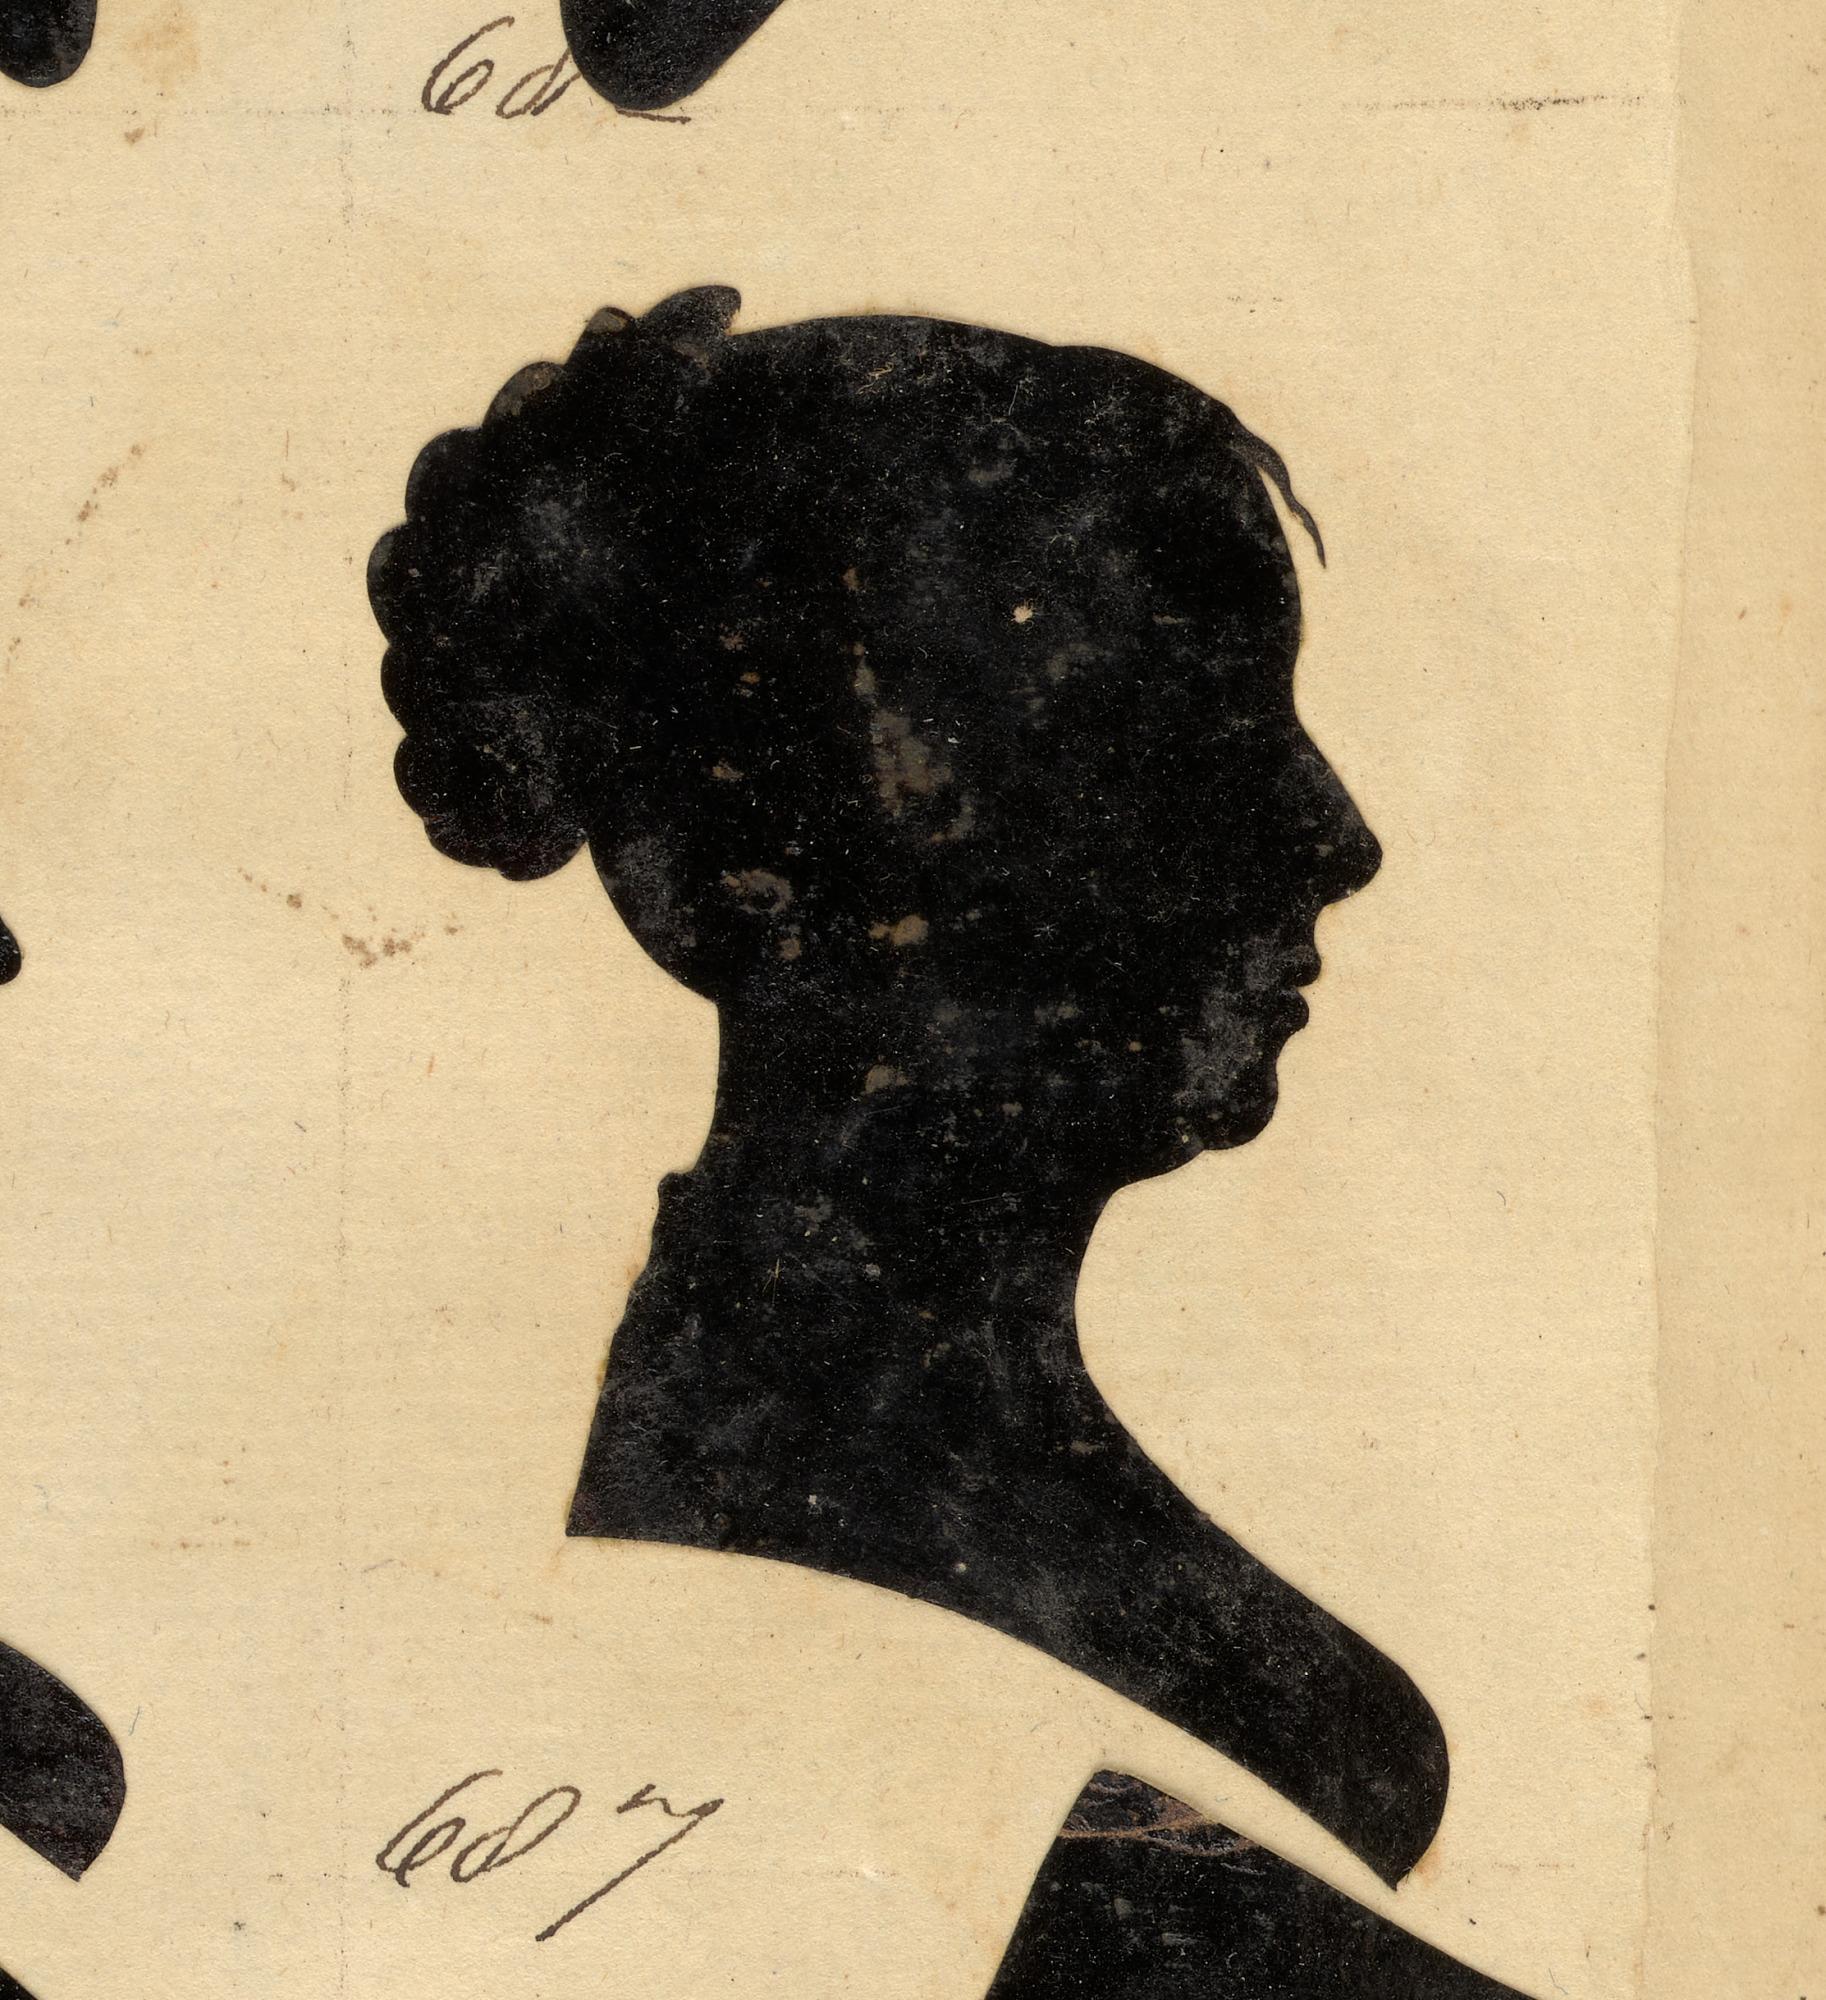 68
687